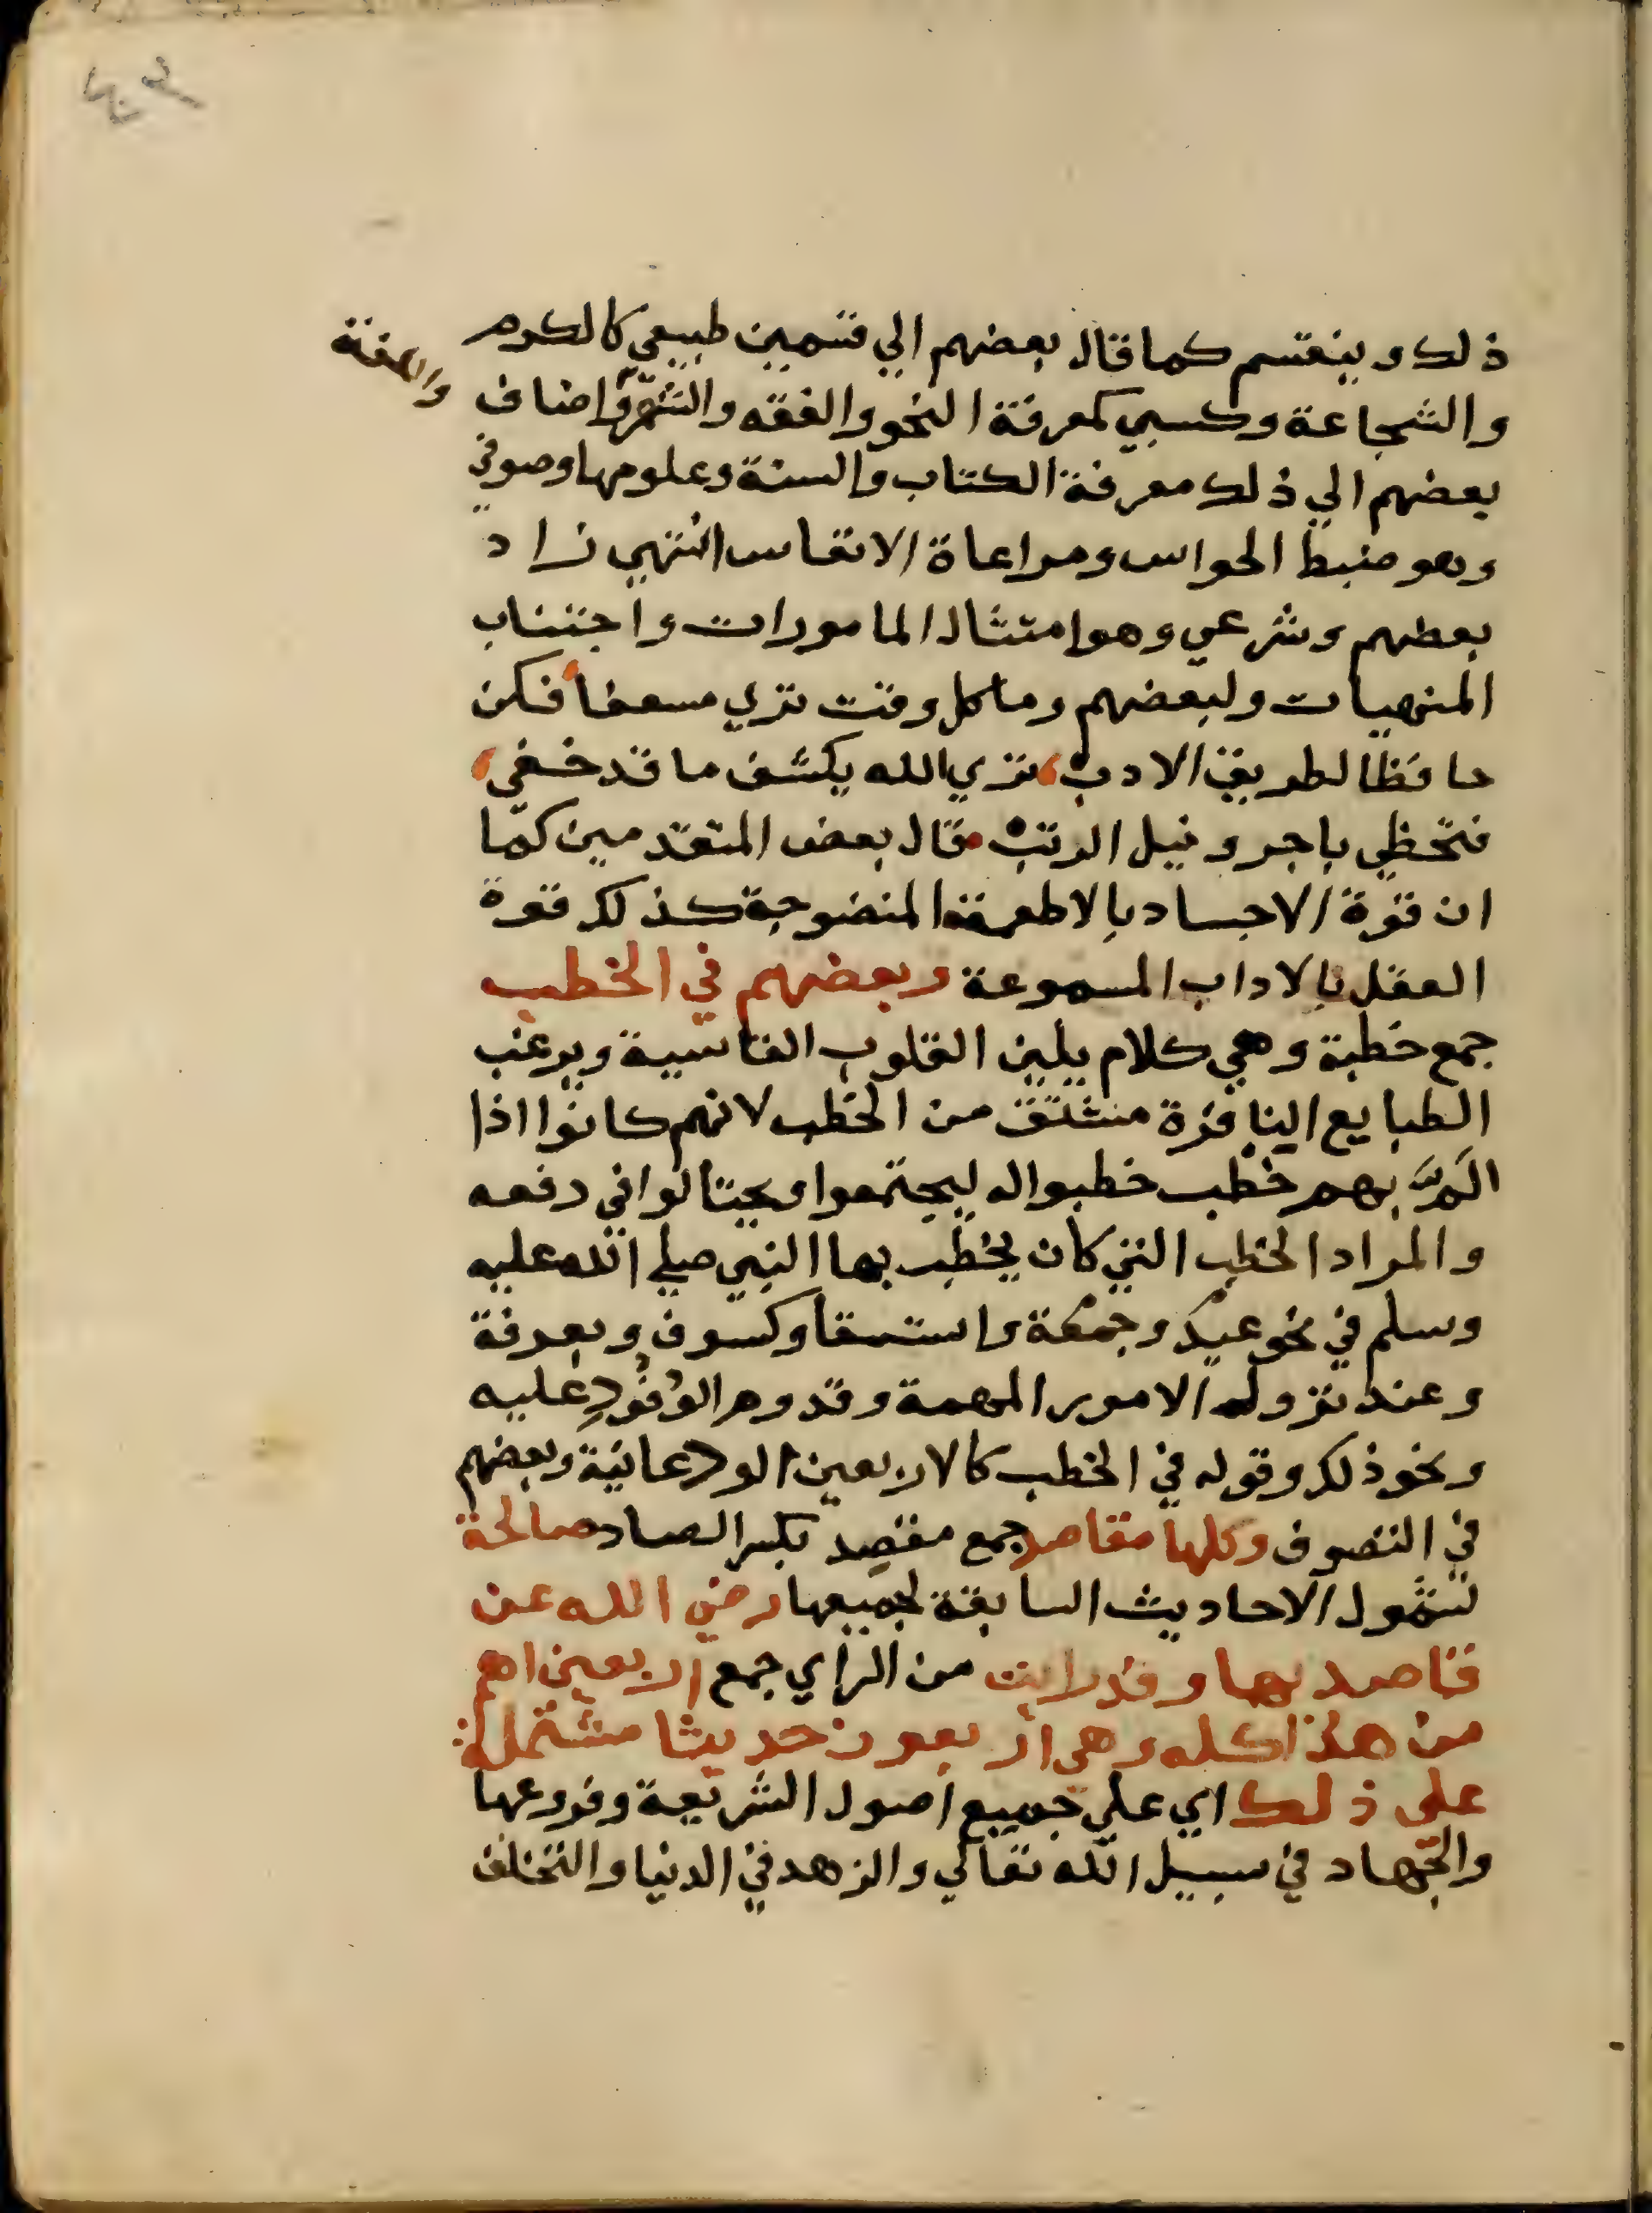 ذلك وينقسم كما قال بعضهم الي قسمين طبيعي كالكرم
والشجاعة وكسبي كمعرفة النحو والفقه والشعر واضاف
بعضهم الي ذلك معرفة الكتاب والسنة وعلومها وصوفي
وهو ضبط الحواس ومراعاة الانفاس انتهي زاد
بعضهم وشرعي وهو امتثال المامورات واجتناب
المنهيات ولبعضهم وما كل وقت تري مسعفا فكن
حافظا لطريق الادب تري الله يكشف ما قد خفي
فتحظي باجر ونيل الرتب قال بعض المتقدمين كما
ان قوة الاجساد بالاطعمة المنضوجة كذلك قوة
العقل بالاداب المسموعة وبعضهم في الخطب
جمع خطبة وهي كلام يلين القلوب القاسية ويرغب
الطبايع النافرة مشتق من الخطب لانهم كانوا اذا
الَمَّ بهم خطب خطبوا له ليجتمعوا ويحتالوا في دفعه
والمراد الخطب التي كان يخطب بها النبي صلي الله عليه
وسلم في نحو عيد وجمعة واستسقا وكسوف وبعرفة
وعند نزوله الامور المهمة وقدوم الوُفُودِ عليه
ونحو ذلك وقوله في الخطب كالاربعين الودعانية وبعضهم
في التصوف وكلها مقاصد جمع مقصِد بكسر الصاد صالحة
لشمول الاحاديث السابقة لجميعها رضي الله عن
قاصديها وقد رايت من الراي جمع اربعين اهم
من هذا كله وهي اربعون حديثا مشتملة
علي ذلك اي علي جميع اصول الشريعة وفروعها
والجهاد في سبيل الله تعالي والزهد في الدنيا والتخلف